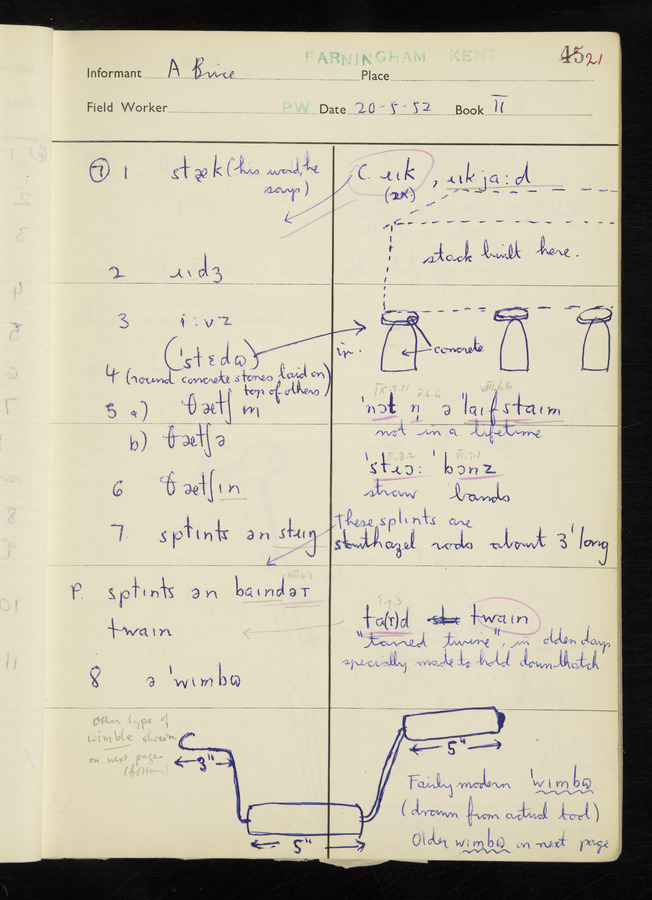 FARNINGHAM KENT
45 21
Informant A Brice Place
Field Worker PW Date 20-5-52 Book II
⑦ 1 stæk (his word, he
says)
C. ɹɪk, ɹɪk jaːd
(2x)
stack built here.
2 ɹɪdʒ
3 iːvz
('stɛdɷ)
4 (round concrete stones laid on
top of others)
concrete
5 a) θætʃ m
'nɔt n ə 'laɪfstaɪm
not in a lifetime
b) θætʃə
'stɹɔː 'bɔnz
straw bands
6 θætʃɪn
7 splɪnts ən stɹɪŋ
These splints are
stout hazel rods about 3' long
P. splɪnts ən baɪndəɾ
twaɪn
ta(r)d twaɪn
"tarred twine", in olden days
specially made to hold down thatch
8 ə 'wɪmbɷ
Other type of
wimble shown
on next page
(bottom)
3"
5"
5"
Fairly modern 'wɪmbɷ
(drawn from actual tool)
Older wɪmbɷ on next page